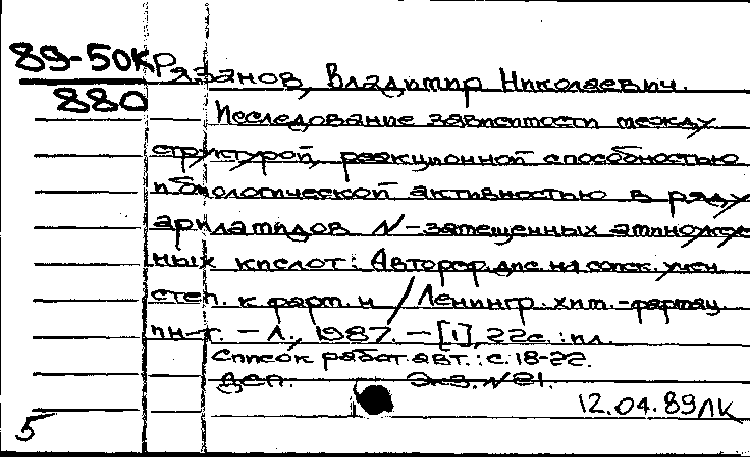 89-50к
880
Рязанов, Владимир Николаевич.
Исследование зависимости между
структурой, реакционной способностью
и биологической активностью в ряду
ариламидов N-замещенных аминоуксус-
ных кислот: Автореф. дис. на соиск. учен.
степ. к. фарм. н / Ленингр. хим.-фармац.
ин-т. – Л., 1987. – [1], 22с.: ил.
Список работ авт.: с. 18-22.
Дсп. Экз. N 21.
12.04.89ЛК
5